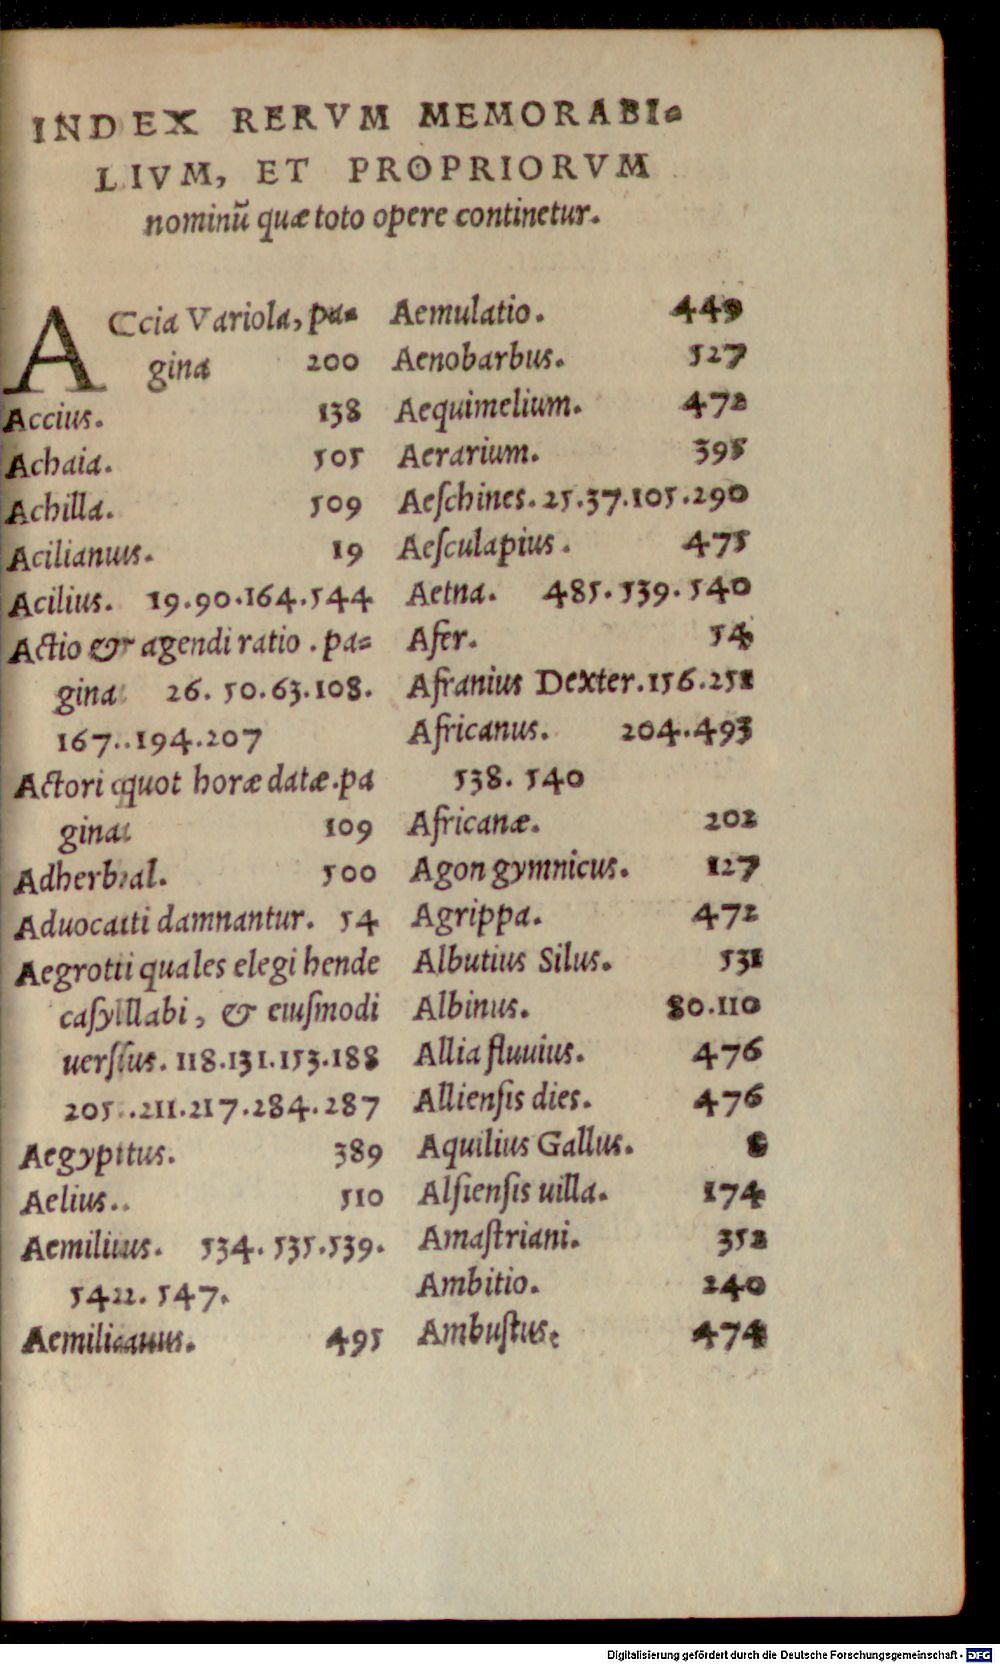 INDEX RERVM MEMORABI-
LIVM, ET PROPRIORVM
nominū quæ toto opere continetur.
ACcia Variola, pa-
gina 200
Accius. 138
Achaia. 505
Achilla. 509
Acilianus. 19
Acilius. 19.90.164.544
Actio & agendi ratio. pa=
gina 26. 50.63.108.
167.194.207
Actori quot horæ datæ.pa
gina 109
Adherbal. 500
Aduocati damnantur. 54
Aegroti quales elegi hende
caſyllabi, & eiuſmodi
uerſus. 118.131.153.188
205.211.217.284.287
Aegyptus. 389
Aelius. 510
Aemilius. 534. 535.539.
542. 547.
Aemilianus. 495
Aemulatio. 449
Aenobarbus. 527
Aequimelium. 472
Aerarium. 395
Aeſchines. 25.37.105.290
Aeſculapius. 475
Aetna. 485. 539. 540
Afer. 54
Afranius Dexter.156.251
Africanus. 204.493
538. 540
Africanæ. 202
Agon gymnicus. 127
Agrippa. 472
Albutius Silus. 531
Albinus. 80.110
Allia fluuius. 476
Allienſis dies. 476
Aquilius Gallus.
Alſienſis uilla. 174
Amaſtriani. 352
Ambitio. 240
Ambuſtus. 474
Digitalisierung gefördert durch die Deutsche Forschungsgemeinschaft - DFG